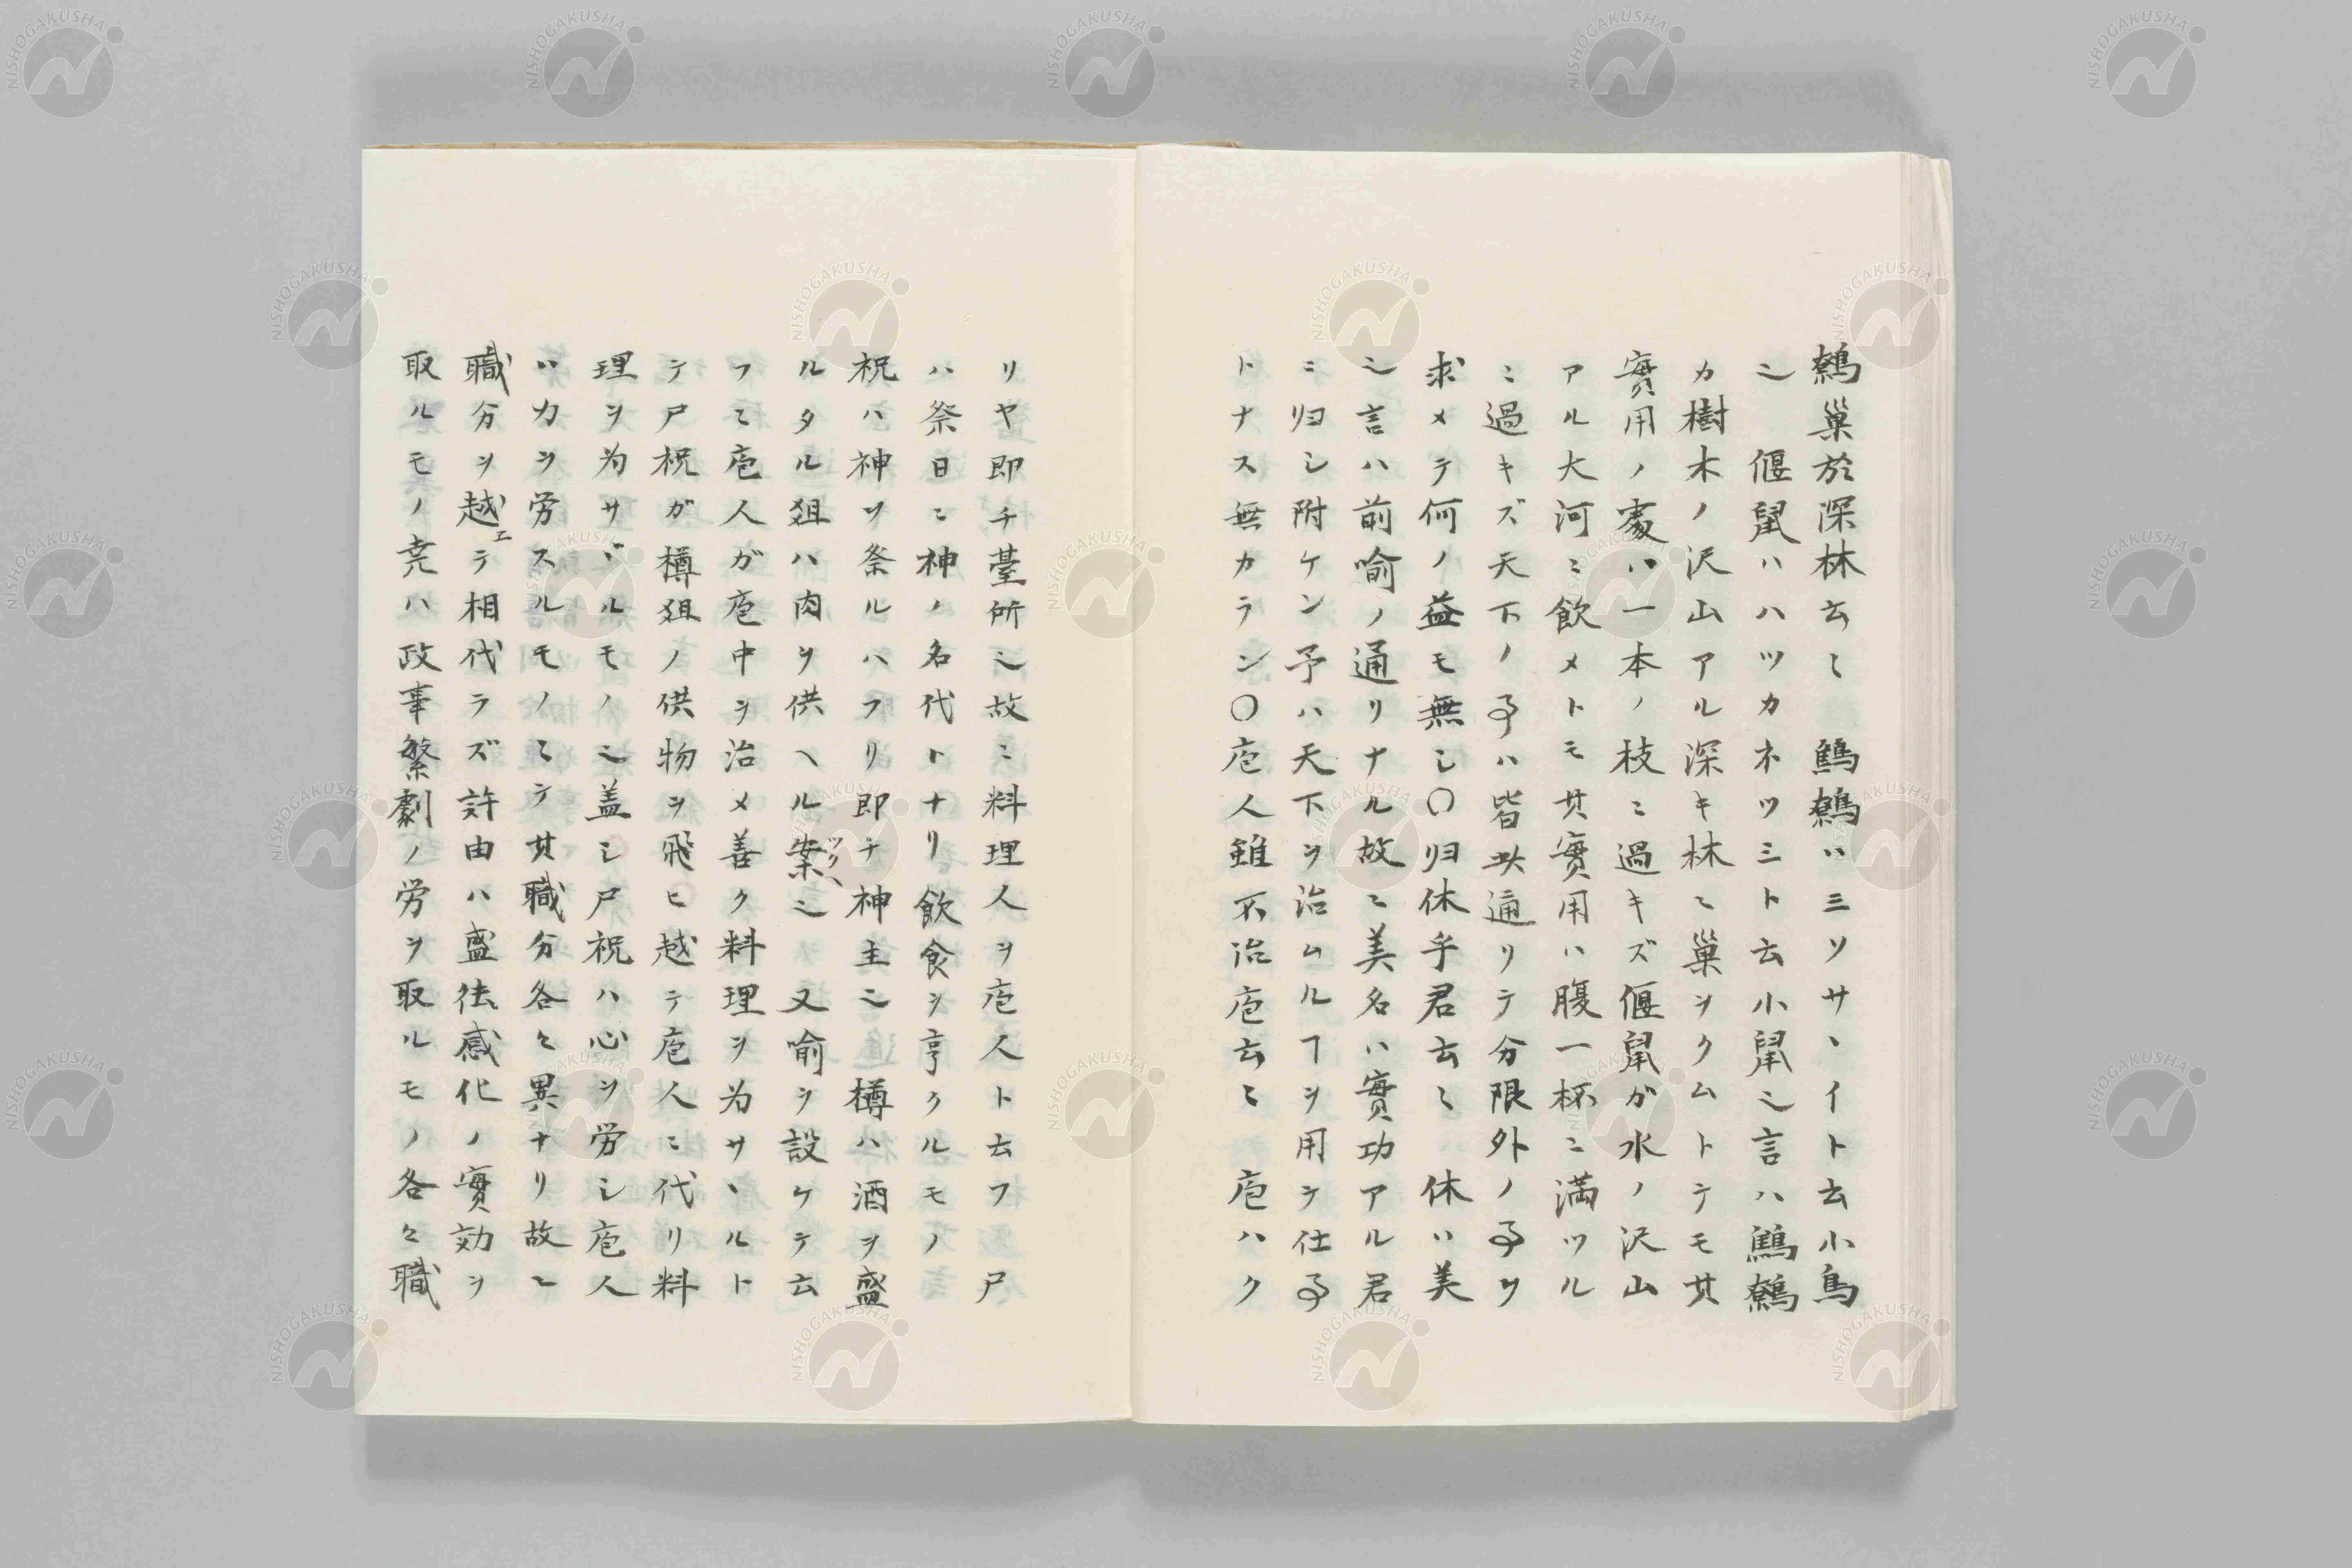 鷦巢於深林云〻　鷦鷯ハミソサヽイト云小鳥
也　偃鼠ハハツカネツミト云小鼠也言ハ鷦鷯
カ樹木ノ沢山アル深キ林ニ巢ヲクムトテモ其
實用ノ處ハ一本ノ枝ニ過キズ偃鼠が水ノ沢山
アル大河ニ飲メトモ其實用ハ腹一杯ニ満ツル
ニ過キズ天下ノ事ハ皆此通リテ分限外ノ事ヲ
求メテ何ノ益モ無シ〇归休乎君云〻　休ハ美
也言ハ前喻ノ通リナル故ニ美名ハ實功アル君
ニ归シ附ケン予ハ天下ヲ治ムルヿヲ用テ仕事
トナス無カラン〇庖人雖不治庖云〻　庖ハク
リヤ即チ臺所也故ニ料理人ヲ庖人ト云フ　尸
ハ祭日ニ神ノ名代トナリ飲食ヲ享クルモノ
祝ハ神ヲ祭ルハフリ即チ神主也　樽ハ酒ヲ盛
ルタル俎ハ肉ヲ供ヘル案ツクヘ也　又喻ヲ設ケテ云
フニ庖人ガ庖中ヲ治メ善ク料理ヲ为サヽルト
テ尸祝ガ樽俎ノ供物ヲ飛ヒ越テ庖人ニ代リ料
理ヲ为サヾルモノ也盖シ尸祝ハ心ヲ労シ庖人
ハカヲ労スルモノニテ其職分各〻異ナリ故ニ
職分ヲ越エテ相代ラズ許由ハ盛徳感化ノ實効ヲ
取ルモノ尭ハ政事繁劇ノ労ヲ取ルモノ各〻職
NISHOGAKUSHA